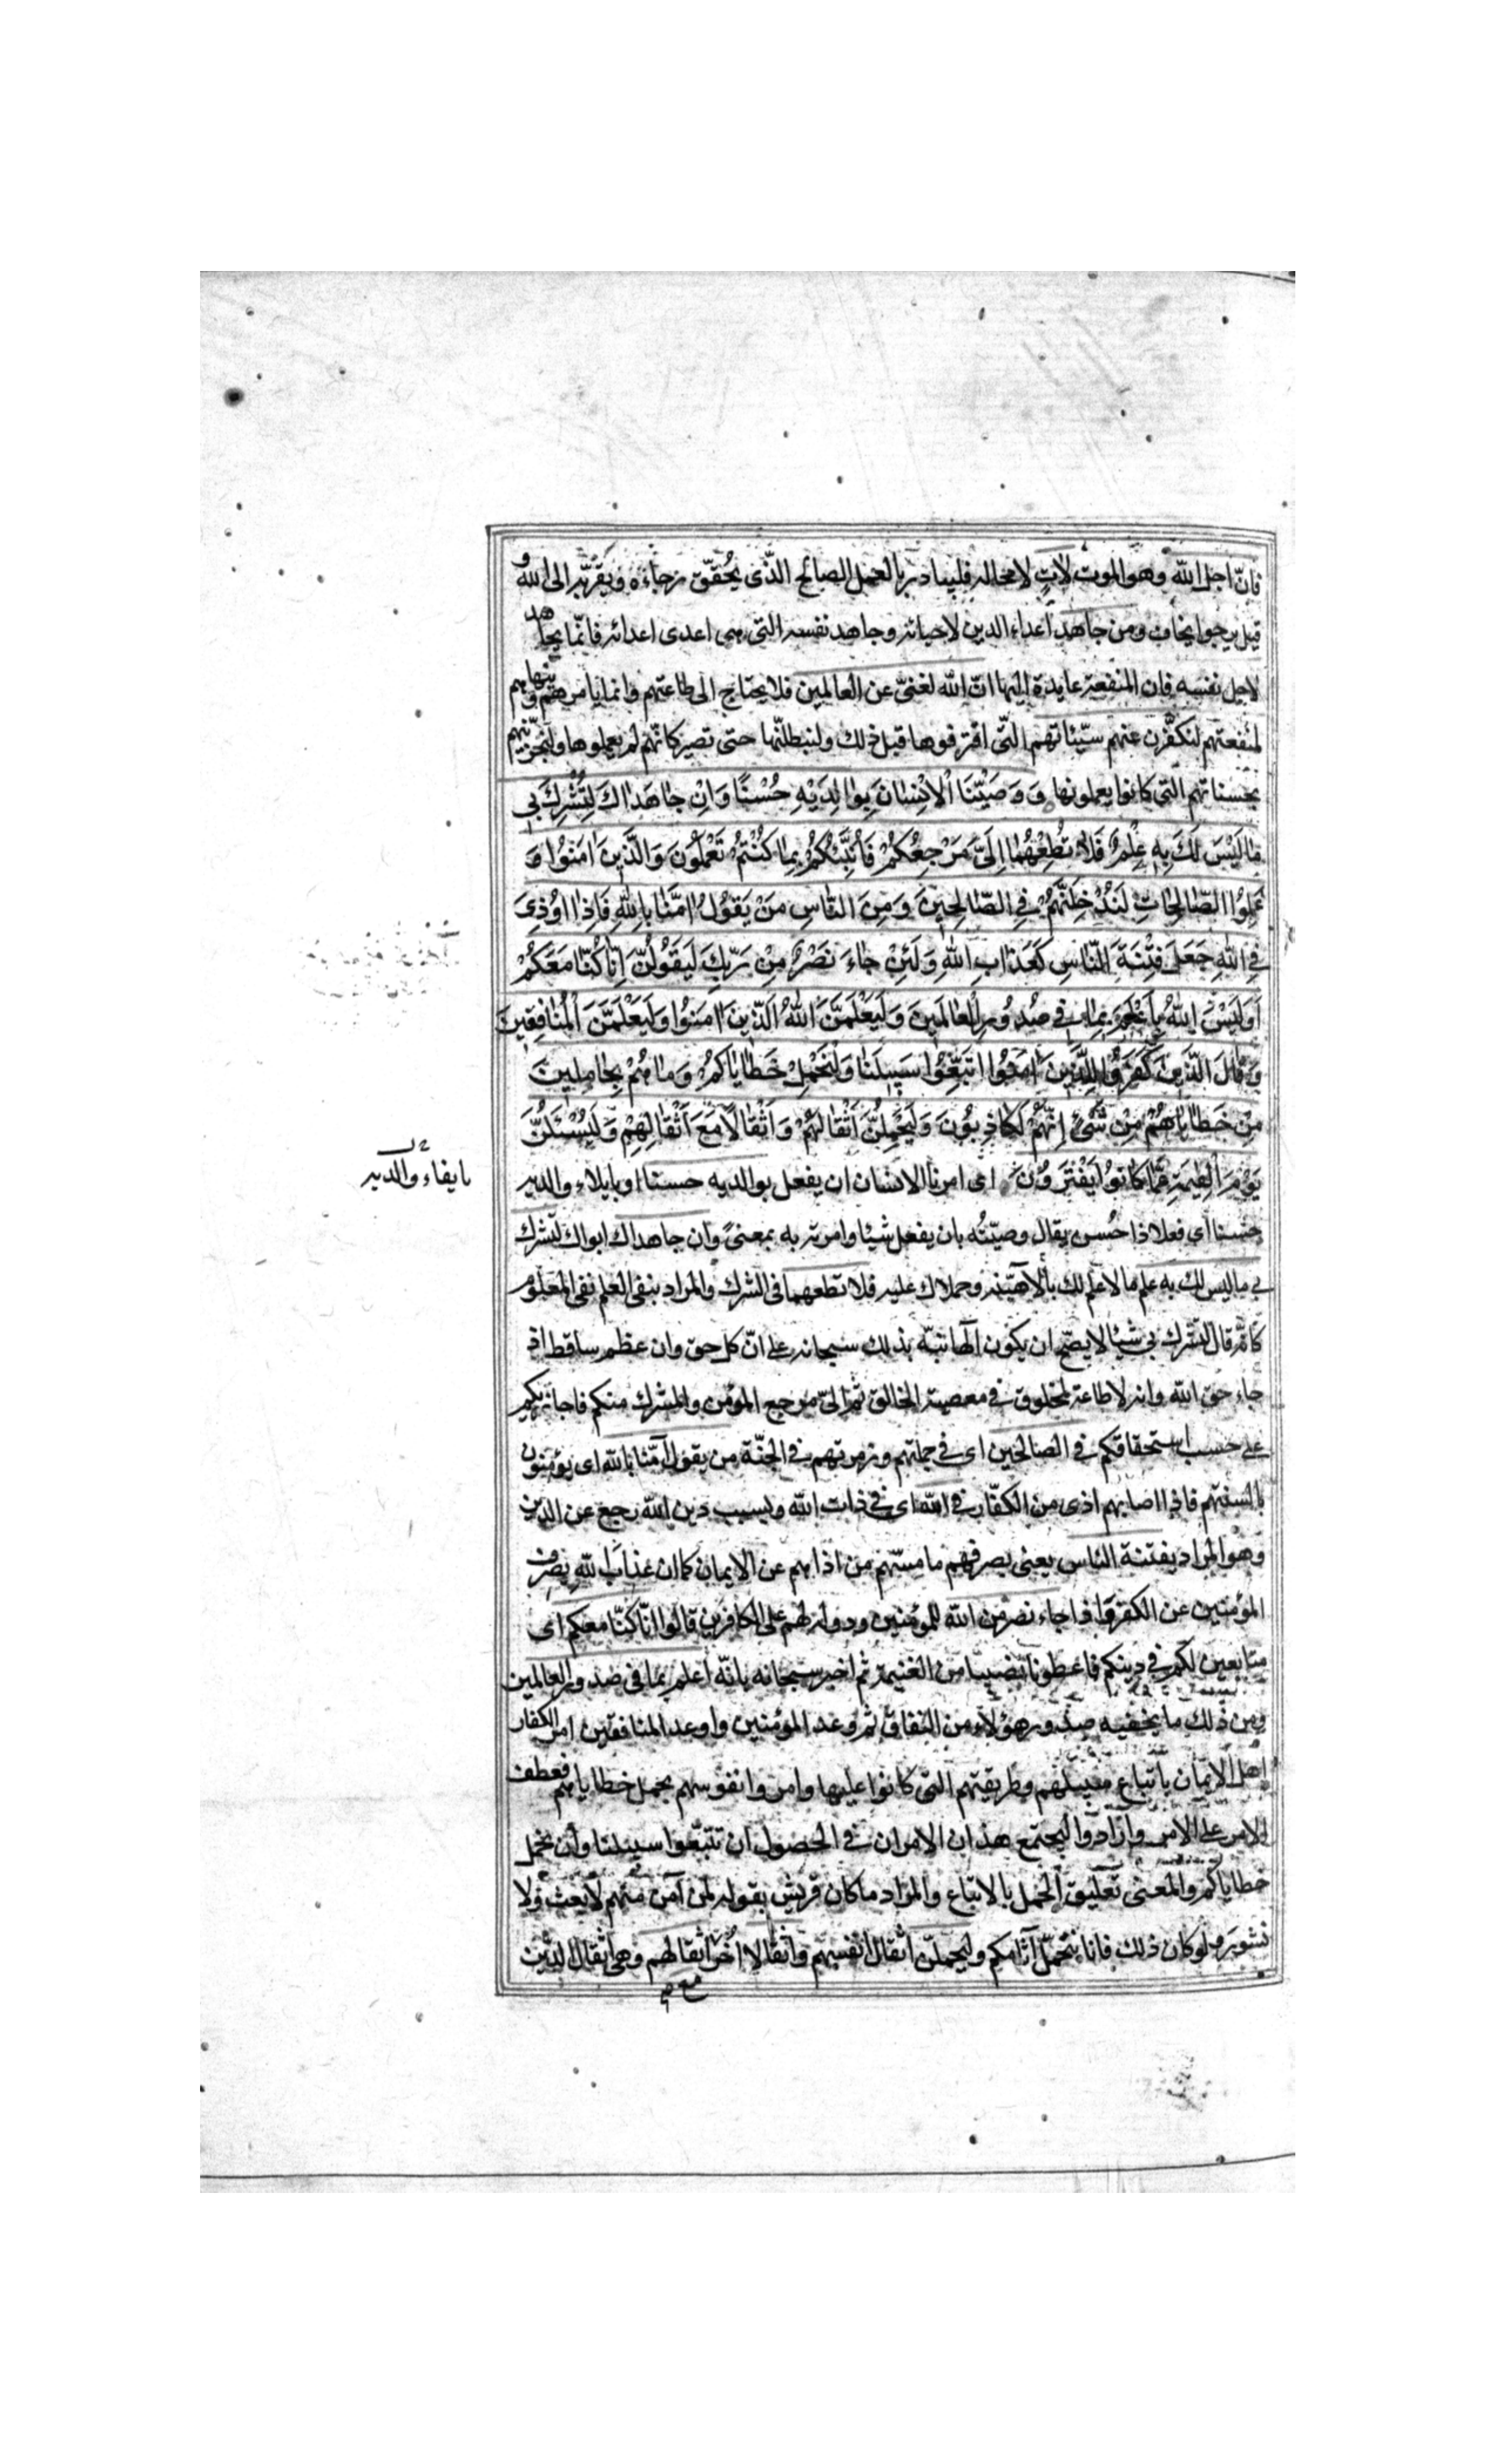 فانّ اجل الله وهو الموت لاتٍ لا محالة فليبادر بالعمل الصالح الّذى يحقّق رجاءه ويقرّبه الى الله و
قيل يرجوا يخاف ومن جاهد اعداء الدين لاحيائه وجاهد نفسه التى هى اعدى اعدائه فانّما يجاهد
لاجل نفسه فان المنفعة عايدة اليها انّ الله لغنىّ عن العالمين فلا يحتاج الى طاعتهم وانما يامرهم وينهاهم
لمنفعتهم لنكفّرن عنهم سيّئاتهم الّتى اقترفوها قبل ذلك ولنبطلنّها حتى تصير كانّهم لم يعملوها ولنجزينّهم
بحسناتهم التى كانوا يعملونها وَوَصَّيْنَا الْاِنْسٰانَ بِوٰالِدَيْهِ حُسْنًا وَاِنْ جٰاهَدٰاكَ لِتُشْرِكَ بى
مٰا لَيْسَ لَكَ بِهِ عِلْمٌ فَلٰا تُطِعْهُمٰا اِلَىَّ مَرْجِعُكُمْ فَاُنَبِّئُكُمْ بِمٰا كُنْتُمْ تَعْمَلُونَ وَالَّذِينَ اٰمَنُوا وَ
عَمِلُوا الصّٰالِحٰاتِ لَنُدْخِلَنَّهُمْ فِى الصّٰالِحِينَ وَمِنَ النّٰاسِ مَنْ يَقُولُ اٰمَنّٰا بِاللهِ فَاِذٰا اُوذِىَ
فِى اللهِ جَعَلَ فِتْنَةَ النّٰاسِ كَعَذٰابِ اللهِ وَلَئِنْ جٰاءَ نَصْرٌ مِنْ رَبِّكَ لَيَقُولُنَّ اِنّٰا كُنّٰا مَعَكُمْ
اَوَلَيْسَ اللهُ بِاَعْلَمَ بِمٰا فِى صُدُورِ الْعٰالَمِينَ وَلَيَعْلَمَنَّ اللهُ الَّذِينَ اٰمَنُوا وَلَيَعْلَمَنَّ الْمُنٰافِقِينَ
وَقٰالَ الَّذِينَ كَفَرُوا لِلَّذِينَ اٰمَنُوا اتَّبِعُوا سَبِيلَنٰا وَلْنَحْمِلْ خَطٰايٰاكُمْ وَمٰا هُمْ بِحٰامِلِينَ
مِنْ خَطٰايٰاهُمْ مِنْ شَىْءٍ اِنَّهُمْ لَكٰاذِبُونَ وَلَيَحْمِلُنَّ اَثْقٰالَهُمْ وَاَثْقٰالًا مَعَ اَثْقٰالِهِمْ وَلَيُسْئَلُنَّ
يَوْمَ الْقِيٰمَةِ عَمّٰا كٰانُوا يَفْتَرُونَ اى امرنا الانسان ان يفعل بوالديه حسنا او بايلاء والديه
بايفاء والديه
حسنا اى فعلا ذا حُسن يقال وصيّتُه بان يفعل شيئا وامرته به بمعنىً وان جاهداك ابواك لتشرك
بى ما ليس لك به علم ما لا علم لك بالاهيّته وحملاك عليه فلا تطعهما فى الشرك والمراد بنفى العلم نفى المعلوم
كانّه قال لتشرك بى شيئا لا يصحّ ان يكون الهًا نبّه بذلك سبحانه على انّ كل حق وان عظم ساقط اذا
جاء حق الله وانه لا طاعة لمخلوق فى معصية الخالق ثم الىّ مرجع المؤمن والمشرك منكم فاجازيكم
على حسب استحقاقكم فى الصالحين اى فى جملتهم وزمرتهم فى الجنّة من يقول آمنّا بالله اى يؤمنون
بالسنتهم فاذا اصابهم اذى من الكفّار فى الله اى فى ذات الله وبسبب دين الله رجع عن الدين
وهو المراد بفتنة الناس يعنى يصرفهم ما مسّهم من اذاهم عن الايمان كما ان عذاب الله يصرف
المؤمنين عن الكفر واذا جاء نصر من الله للمؤمنين ودوام لهم على الكافرين قالوا انّا كنّا معكم اى
متابعين لكم فى دينكم فاعطونا نصيبا من الغنيمة ثم اخبر سبحانه بانّه اعلم بما فى صدور العالمين
ومن ذلك ما يخفيه صدور هؤلاء من النفاق ثم وعد المؤمنين واوعد المنافقين امر الكفار
اهل الايمان باتباع سبيلهم وطريقتهم التى كانوا عليها وامروا نفوسهم بحمل خطاياهم فعطف
الامر على الامر وارادوا ليجتمع هذان الامران فى الحصول ان تتبعوا سبيلنا وان نحمل
خطاياكم والمعنى تعليق الحمل بالاتباع والمراد ما كان قريش يقوله لمن آمن منهم لا بعث ولا
نشور ولو كان ذلك فانا نتحمّل آثامكم وليحملنّ اثقال انفسهم واثقالا اُخر اثقالهم وهى اثقال الذين
مع